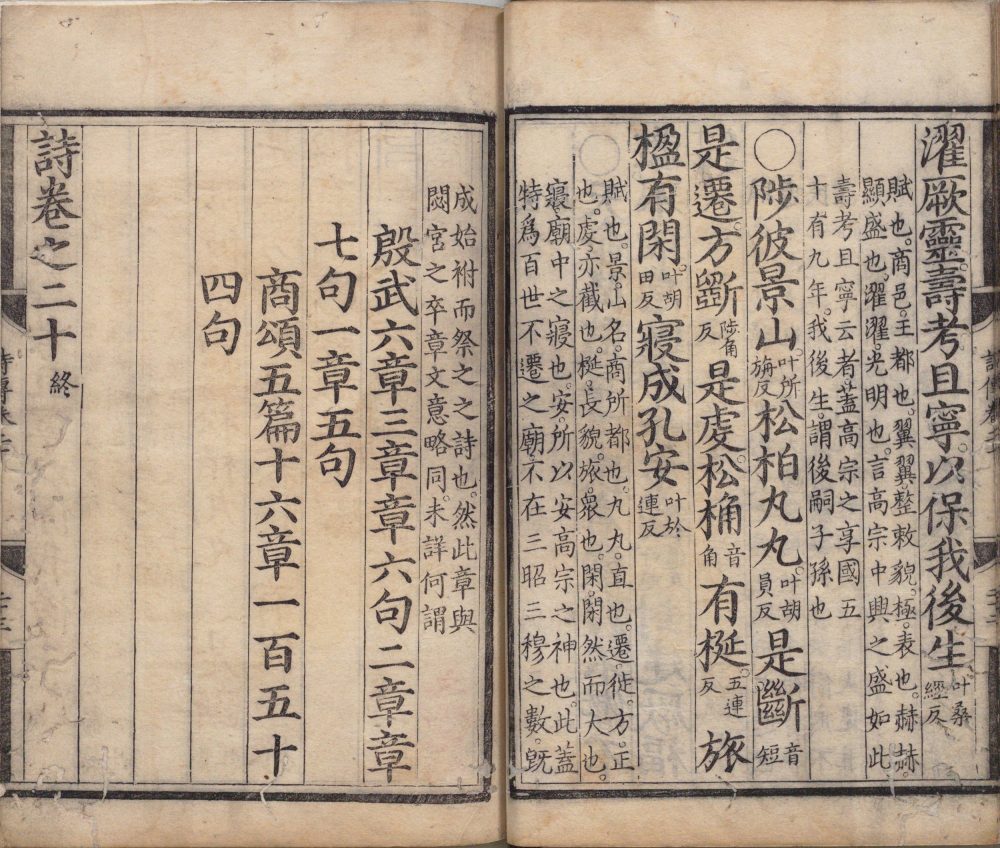 濯厥靈。壽考且寧。以保我後生。叶桑經反
賦也。商邑。王都也。翼翼。整敕貌。極。表也。赫赫。
顯盛也。濯濯。光明也。言高宗中興之盛如此
壽考且寧云者。蓋高宗之享國五
十有九年。我後生。謂後嗣子孫也
○陟彼景山叶所旃反松柏丸丸。叶胡員反是斷音短
是遷。方斲陟角反是虔。松桷音角有梴五連反旅
楹有閑叶胡田反寢成孔安叶於連反
賦也。景。山名。商所都也。丸丸。直也。遷。徙。方。正
也。虔。亦截也。梴。長貌。旅。衆也。閑。閑然而大也。
寢。廟中之寢也。安。所以安高宗之神也。此蓋
特爲百世不遷之廟。不在三昭三穆之數。旣
成始祔而祭之之詩也。然此章與
閟宮之卒章文意略同。未詳何謂
殷武六章三章章六句二章章
七句一章五句
商頌五篇十六章一百五十
四句
詩卷之二十終